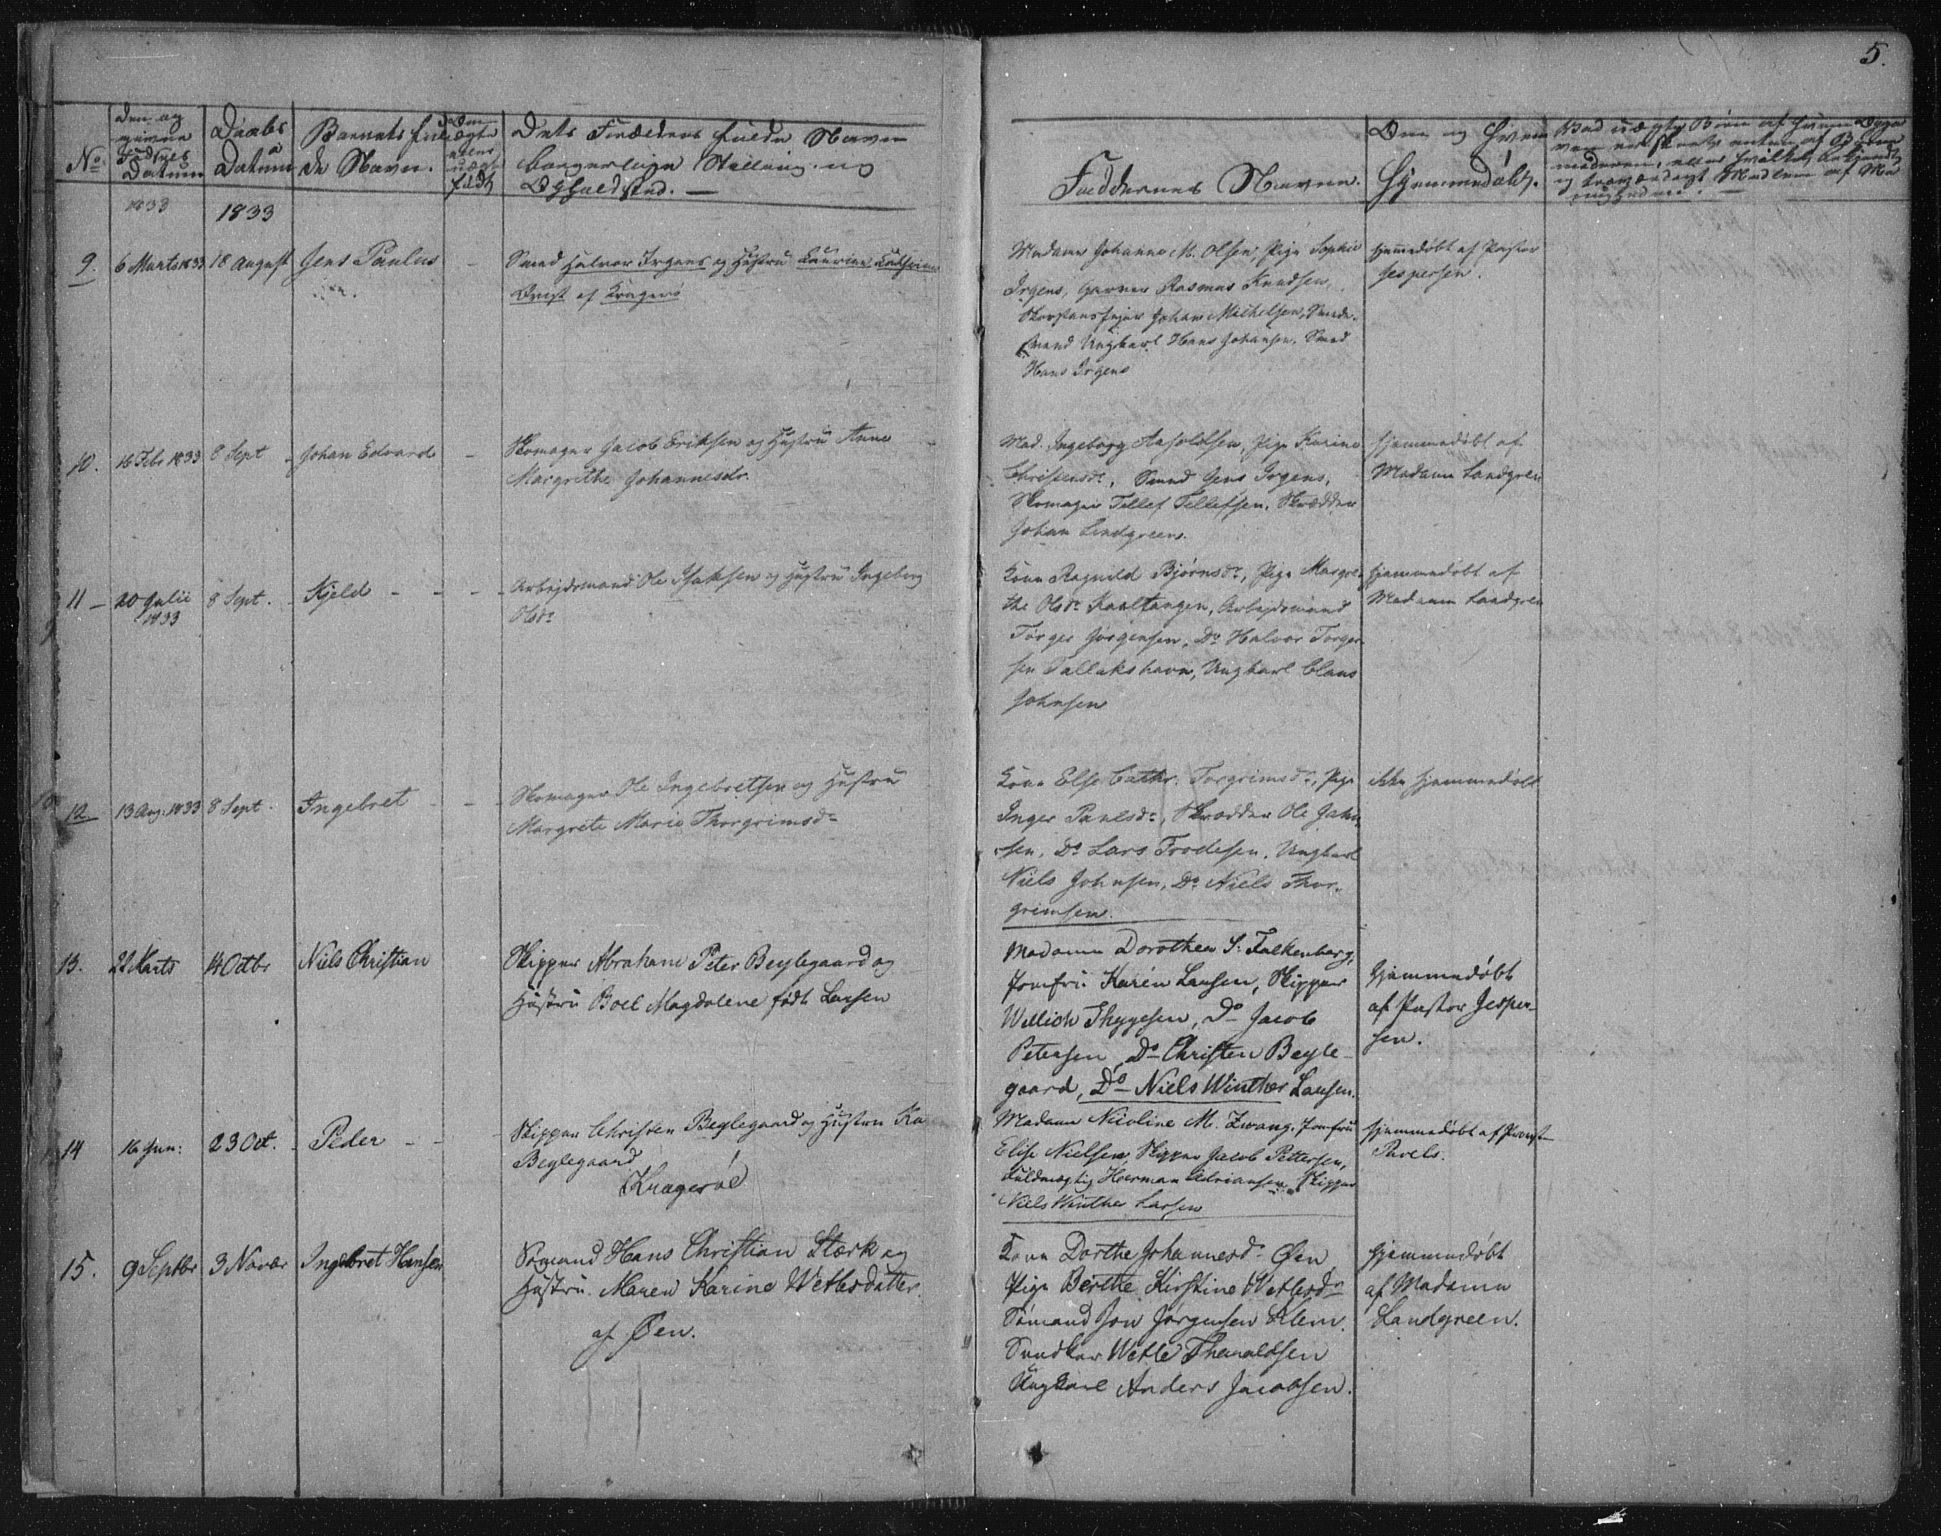 5.
No.
Den og
givne
Fødsels
Datum
Daabs
Datum
Barnets ful
de Navn.
Dets Forældres fulde Navne
borgerlige Stilling og
Opholdsted. —
Faddernes Navne.
Den og hvem
Hjemmedøbt.
1833
1833
9. 6 Marts 1833 18 August Jens Paulus –
Smed Halvor Irgens og Hustru Laurine Cathrine
Qvist af Kragerø
Madame Johanne M. Olsen, Pige Sophie
Irgens, Garver Rasmus Knudsen,
Skorstensfejer Johan Mikkelsen, Smede-
svend Ungkarl Hans Johansen. Smed
Hans Irgens
hjemmedøbt af Pastor
Jespersen.
10. 16 Febr 1833 8 Sept – Johan Edvard –
Skomager Jacob Eriksen og Hustru Anne
Margrethe Johannesdr.
Mad. Ingeborg Aasoldsen, Pige Karine
Christensdr., Smed Jens Irgens,
Skomager Tellef Tellefsen, Skrædder
Johan Lindgreen.
hjemmedøbt af
Madame Landgren
11 – 20 Julii 1833 8 Sept. – Kjeld – – –
Arbejdsmand Ole Isaksen og Hustru Ingeborg
Olsdr
Kone Ragnild Bjørnsdr., Pige Margre-
the Olsdr Kaaltangen, Arbejdsmand
Torger Jørgensen, Do Halvor Torger-
sen Tallakshavn, Ungkarl Claus
Johnsen
hjemmedøbt af
Madame Landgren
12 13 Aug. 1833 8 Sept. – Ingebret – – –
Skomager Ole Ingebretsen og Hustru
Margrete Marie Thorgrimsdr
Kone Else Cathr. Torgrimsdr., Pige
Inger Paulsdr., Skrædder Ole Jahn-
sen, Do Lars Frodesen, Ungkarl
Niels Johnsen, Do Niels Thor-
grimsen.
ikke hjemmedøbt
13. 22 Marts 14 Octbr Niels Christian
Skipper Abraham Peter Beylegaard og
Hustru Boel Magdalene født Larsen
Madame Dorothea S. Falkenberg,
Jomfru Karen Larsen, Skipper
Wellich Thygesen, Do Jacob
Petersen, Do Christen Beyle-
gaard, Do Niels Winther Larsen.
Hjemmedøbt
af Pastor Jesper-
sen.
14 16 Jun: 23 Oct. – Peder – –
Skipper Christen Beylegaard og Hustru Ka
Beylegaard
Kragerøe
Madame Nicoline M. Zwang, Jomfru
Elise Nielsen, Skipper Jacob Pettersen,
Fuldmægtig Herman Adriansen, Skipper
Niels Winther Larsen
hjemmedøbt af Provst
Pavels.
15. 9 Septbr 3 Novbr Ingebret Hansen
Sømand Hans Christian Stærk og
Hustru Maren Karine Wetlesdatter
af Øen.
Kone Dorthe Johannesdr Øen
Pige Berthe Kirstine Wetlesdr
Sømand Jon Jørgensen Klem.
Snedker Wetle Tharaldsen
Ungkarl Anders Jacobsen.
Hjemmedøbt
af Madame
Landgreen.